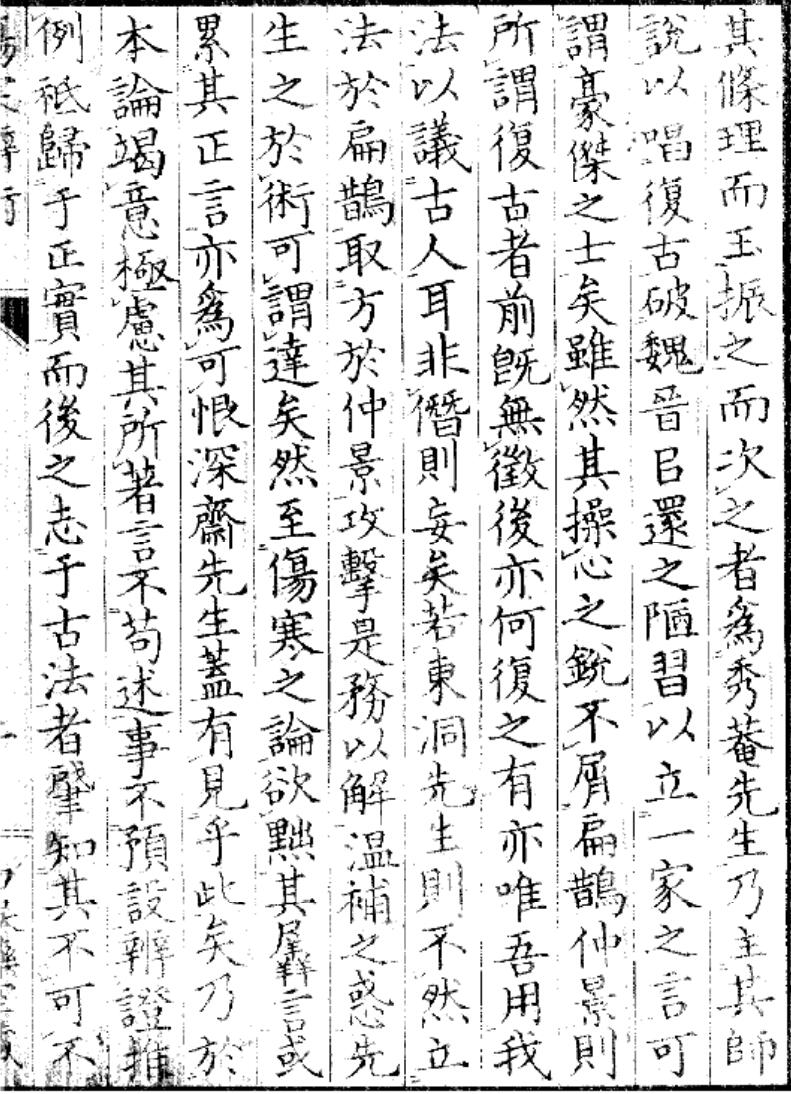 其條理而玉振之而次之者爲秀菴先生乃主其師
說以唱復古破魏晉㠯還之陋習以立一家之言可
謂豪傑之士矣雖然其操心之銳不屑扁鵲仲景則
所謂復古者前既無徵後亦何復之有亦唯吾用我
法以議古人耳非僭則妄矣若東洞先生則不然立
法於扁鵲取方於仲景攻擊是務以解溫補之惑先
生之於術可謂達矣然至傷寒之論欲黜其羼言或
累其正言亦爲可恨深齋先生蓋有見乎此矣乃於
本論竭意極慮其所著言不苟述事不預設辨證推
例祗歸于正實而後之志于古法者肇知其不可不